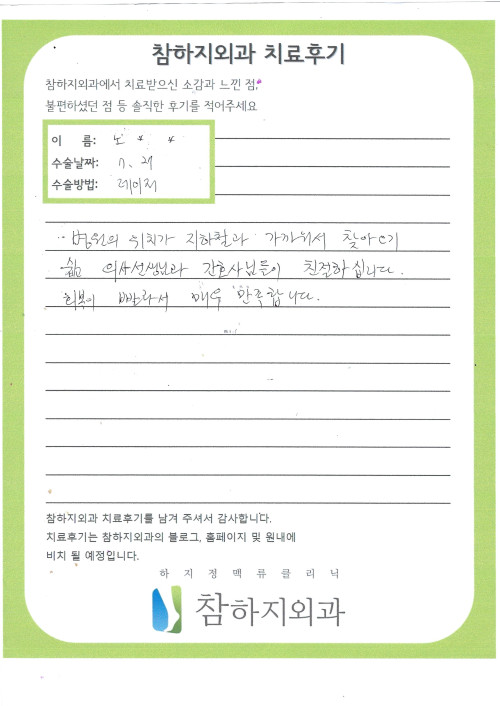 참하지외과 치료후기
참하지외과에서 치료받으신 소감과 느낀 점,
불편하셨던 점 등 솔직한 후기를 적어주세요
이 름: 노 * *
수술날짜:
수술방법: 레이저
병원의 위치가 지하철과 가까워서 찾아오기
쉽고 의사선생님과 간호사님들이 친절하십니다.
회복이 빨라서 매우 만족합니다.
참하지외과 치료후기를 남겨 주셔서 감사합니다.
치료후기는 참하지외과의 블로그, 홈페이지 및 원내에
비치 될 예정입니다.
하지정맥류클리닉
참하지외과